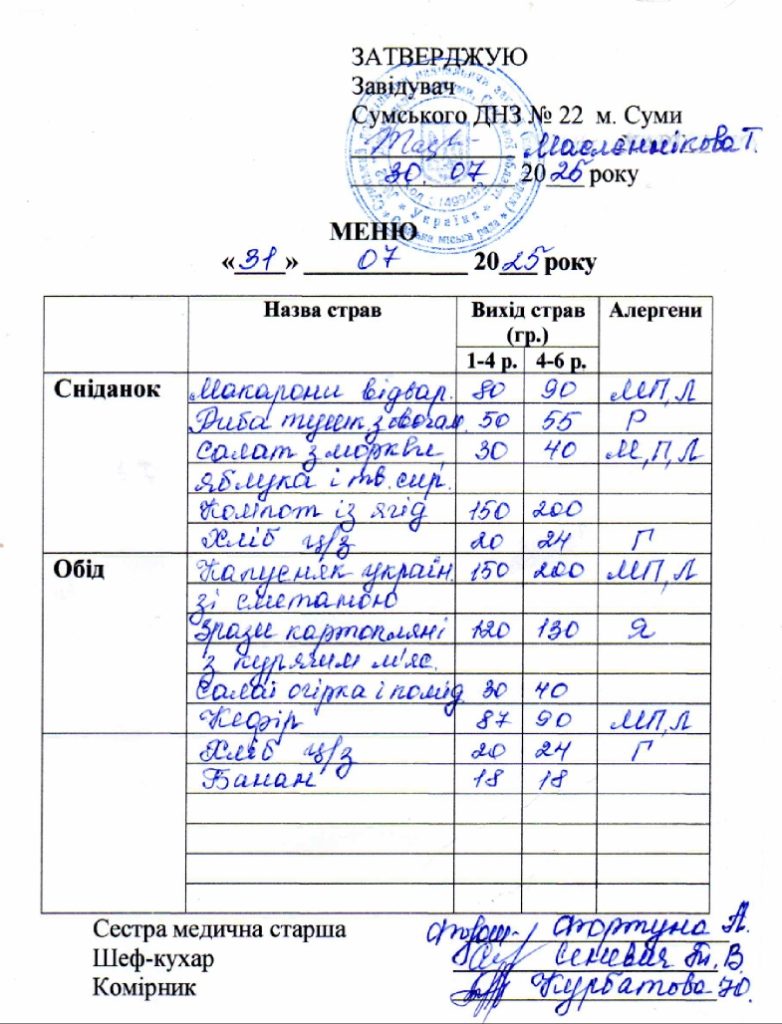 ЗАТВЕРДЖУЮ
Завідувач
Сумського ДНЗ № 22 м. Суми
Масленнікова Т.
30. 07 2025 року
МЕНЮ
«31» 07 2025 року
Назва страв Вихід страв (гр.) Алергени
1-4 р. 4-6 р.
Сніданок Макарони відвар. 80 90 МП,Л
Риба тушк. з овочам. 50 55 Р
Салат з моркви, 30 40 М,П,Л
яблука і тв. сир.
Компот із ягід 150 200
Хліб ц/з 20 24 Г
Обід Капусняк україн. 150 200 МП,Л
зі сметаною
Зрази картопляні 120 130 Я
з курячим м'яс.
Салат огірка і помід. 30 40
Кефір 87 90 МП,Л
Хліб ц/з 20 24 Г
Банан 18 18
Сестра медична старша Фортуна А.
Шеф-кухар Сеневич Т. В
Комірник Курбатова Ю.